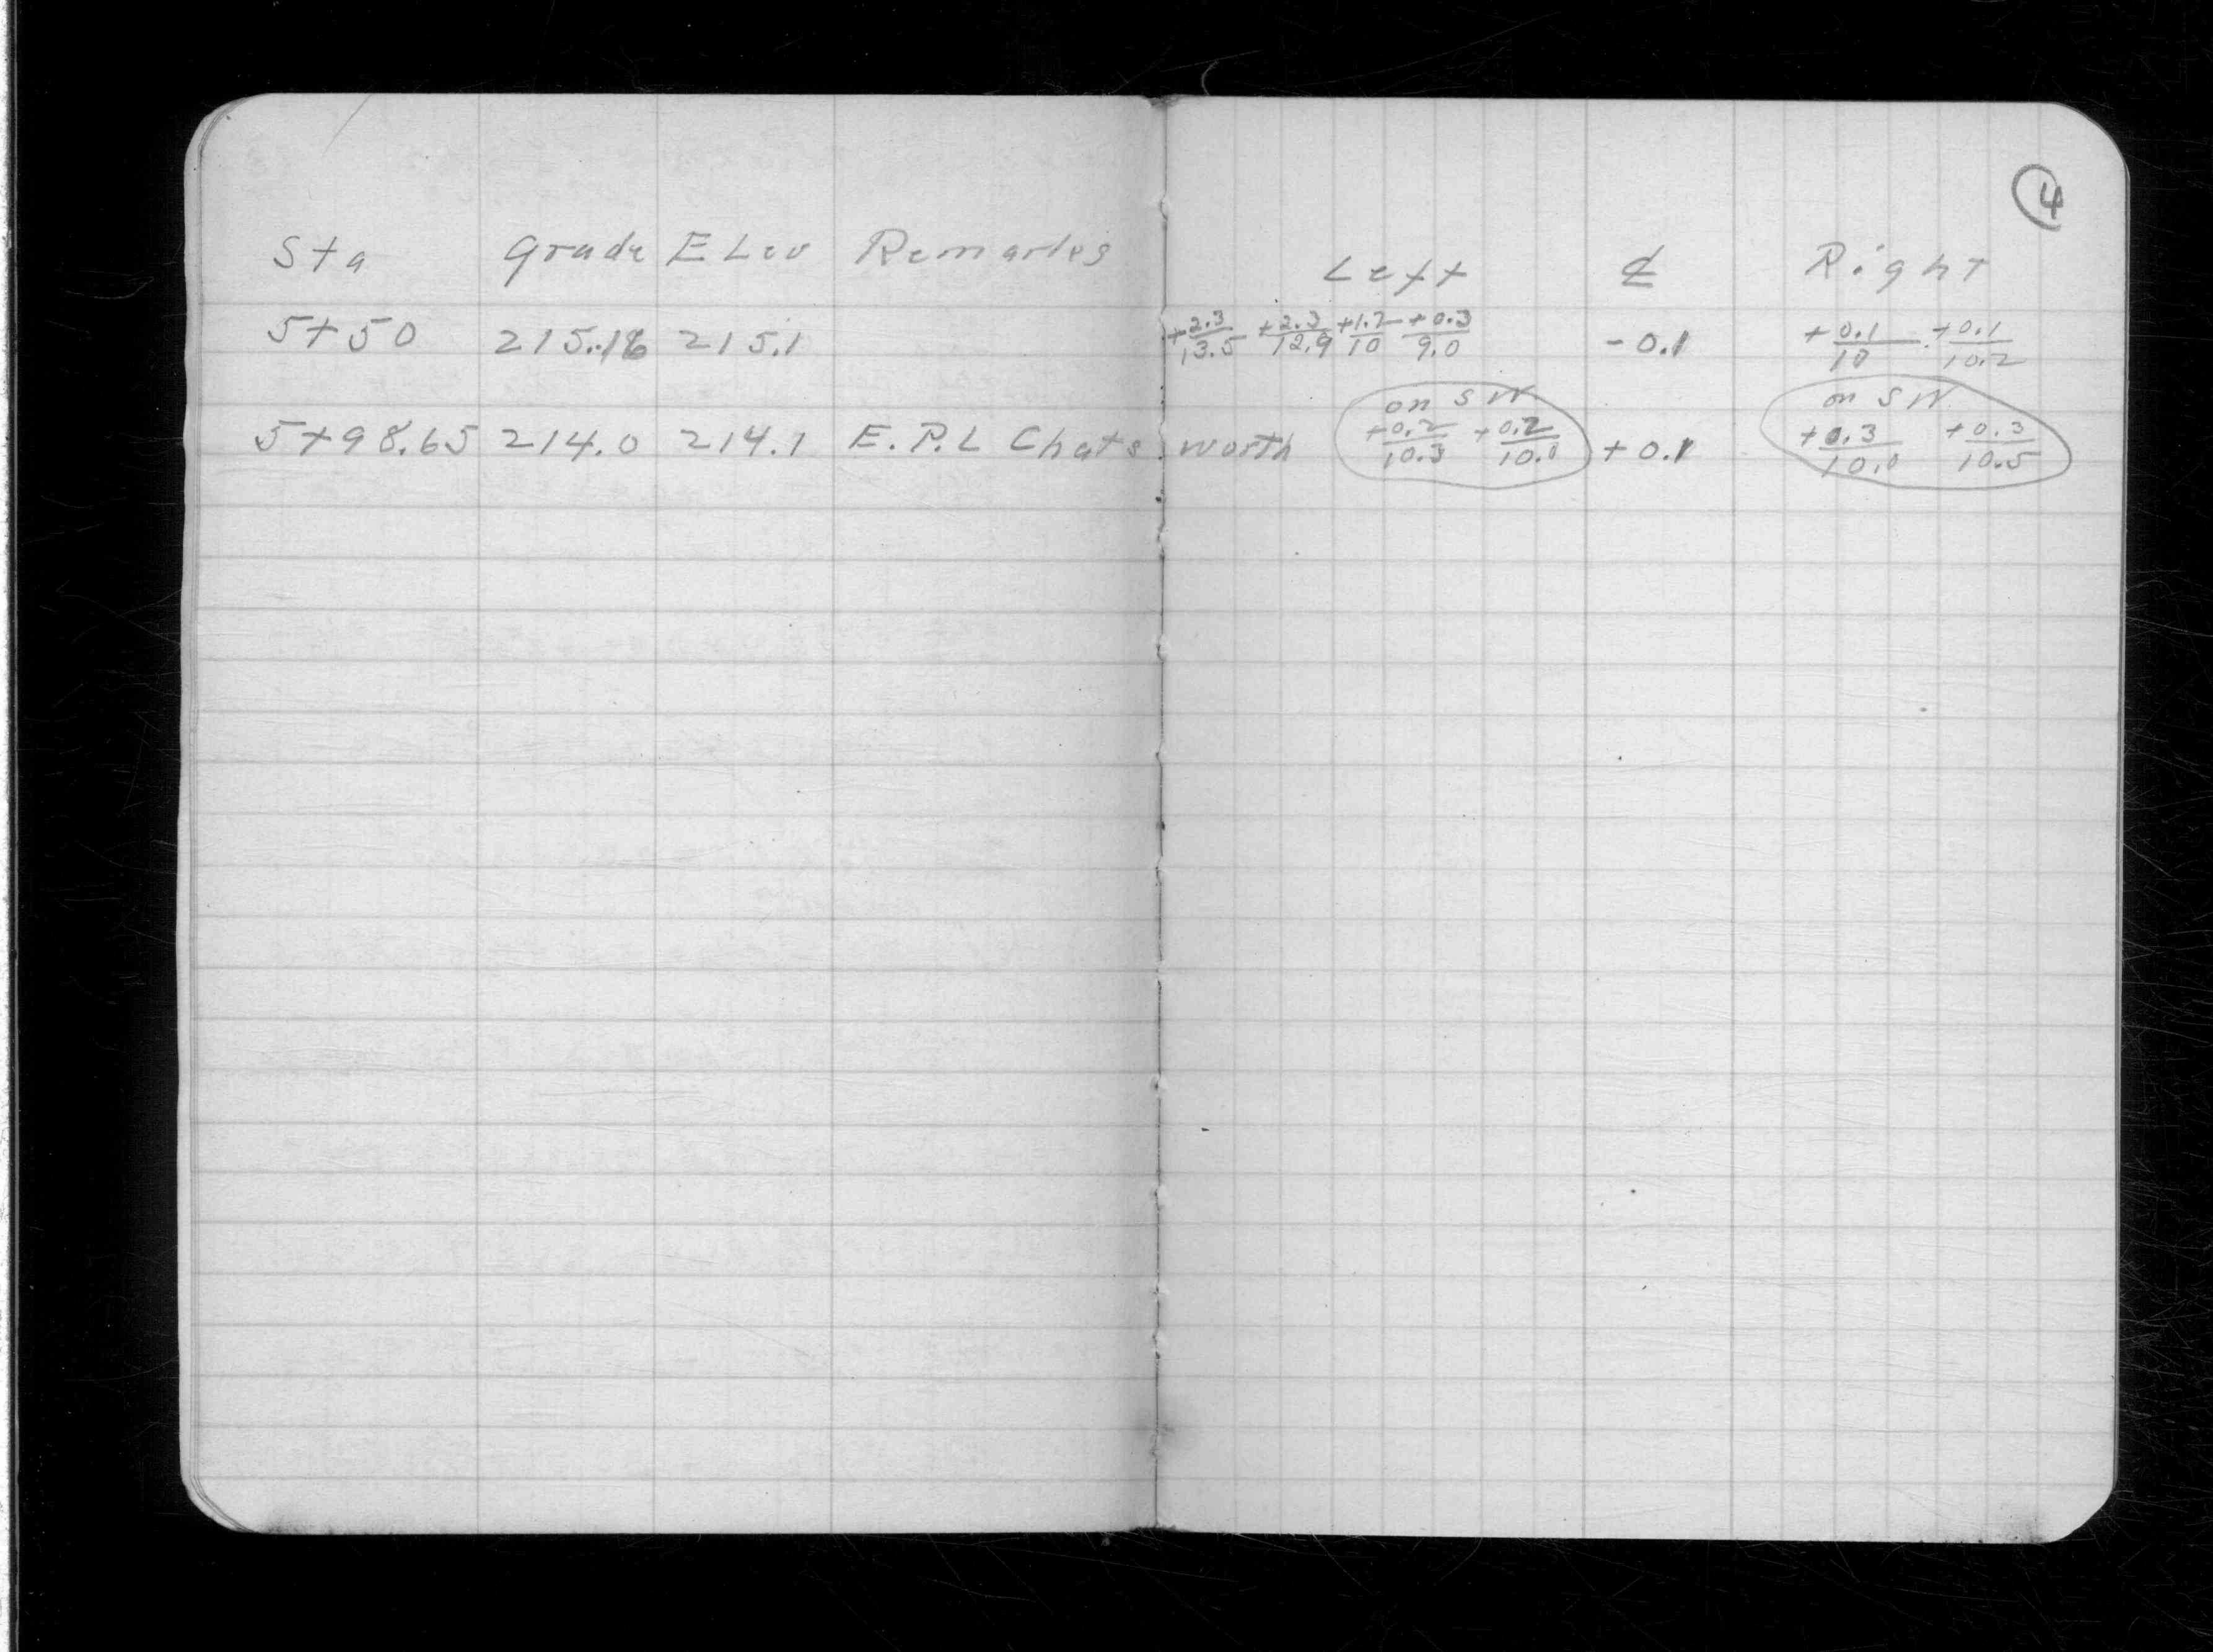 4
Sta grade Elev Remarks Left ℄ Right
5+50 215.18 215.1 +2.3/13.5 +2.3/12.9 +1.2/10 +0.3/9.0 -0.1 +0.1/10 +0.1/10.2
on SW on SW
5+98.65 214.0 214.1 E.P.L Chatsworth +0.2/10.3 +0.2/10.0 +0.1 +0.3/10.0 +0.3/10.5